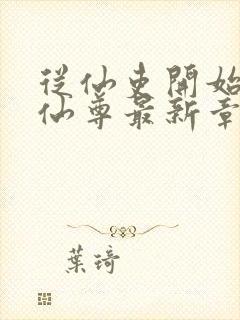 從仙吏開始
仙尊最新章
葉琦